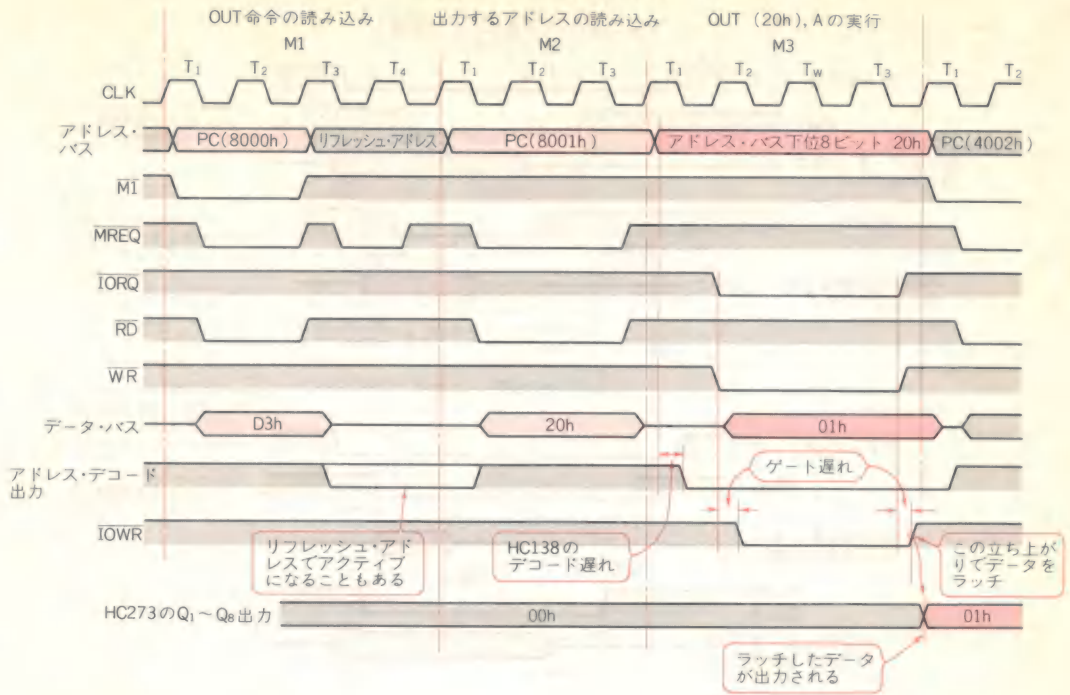 OUT命令の読み込み 出力するアドレスの読み込み OUT (20h), Aの実行
M1 M2 M3
T1 T2 T3 T4 T1 T2 T3 T1 T2 Tw T3 T1 T2
CLK
アドレス・
バス
PC(8000h) リフレッシュ・アドレス PC(8001h) アドレス・バス下位8ビット 20h PC(4002h)
M1
MREQ
IORQ
RD
WR
データ・バス D3h 20h 01h
アドレス・デコード
出力
ゲート遅れ
IOWR
リフレッシュ・アド
レスでアクティブ
になることもある
HC138の
デコード遅れ
この立ち上が
りでデータを
ラッチ
HC273のQ1～Q8出力 00h 01h
ラッチしたデータ
が出力される